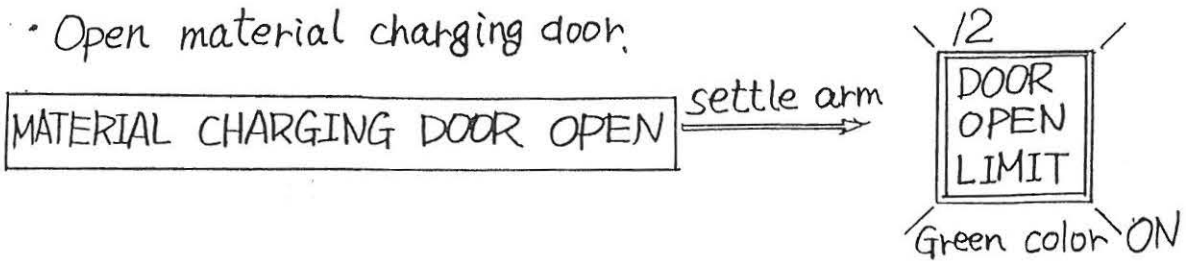 · Open material charging door.
MATERIAL CHARGING DOOR OPEN
settle arm
12
DOOR
OPEN
LIMIT
Green color ON